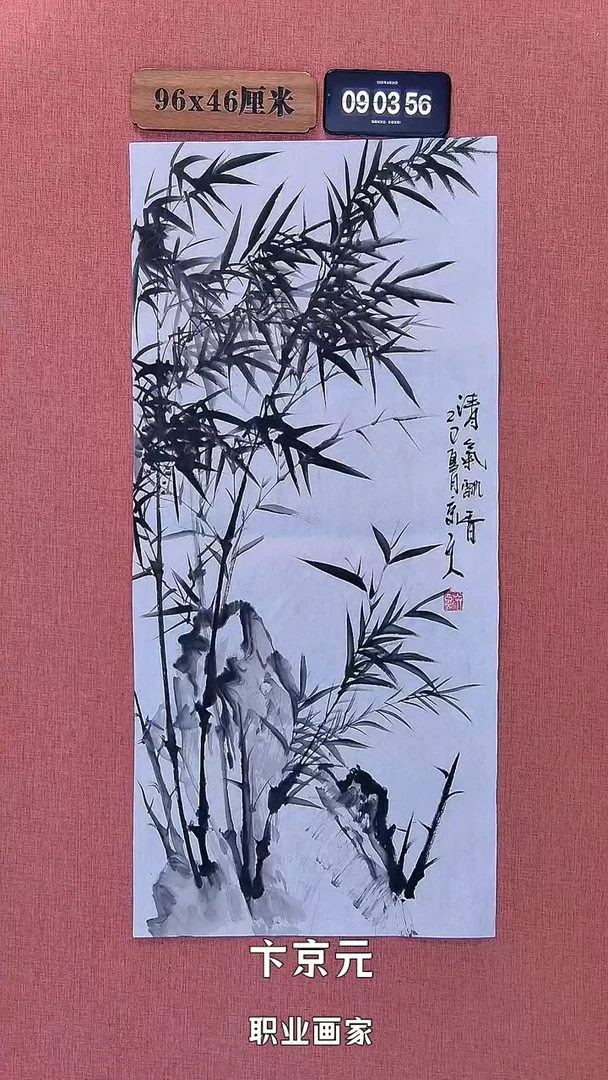 96x46厘米
09 03 56
清氣飘香
乙巳夏月京元
卞京元
职业画家